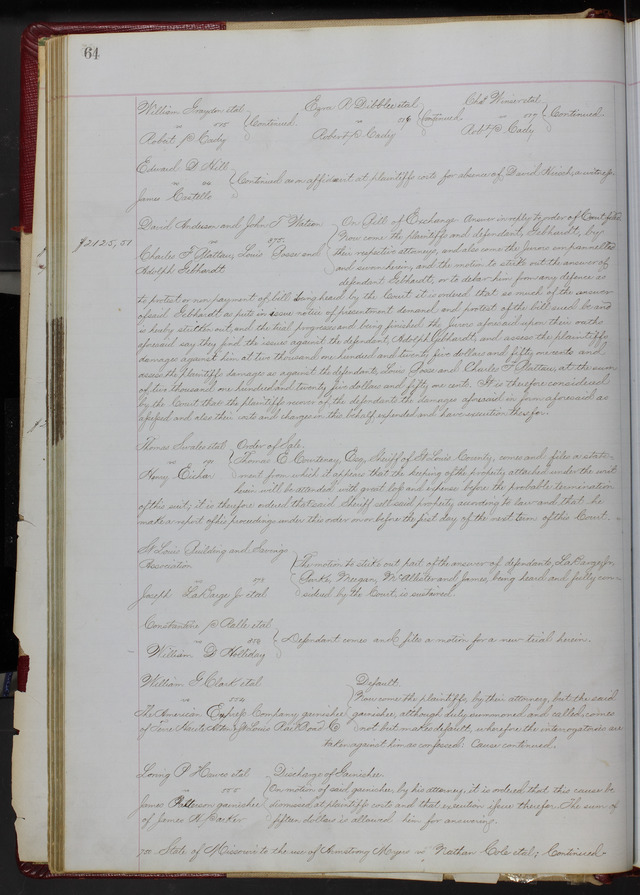 64
William Graydon etal Ezra R Dibblee etal Chs Winser etal
vs Continued vs 516 Continued vs 517 Continued
Robert P Cady Robert P Cady Robt P Cady
Edward D Hall
vs Continued as on affidavit at plaintiffs costs for absence of David Kirsch, a witness
James Castello
David Anderson and John T Watson On Bill of Exchange Answer in reply to order of Court filed
$2125,51 vs Now come the plaintiffs and defendant, Gebhardt, by
Charles F Plattau, Louis Posse and their respective attorneys, and also come the Jurors empannelled
Adolph Gebhardt and sworn herein, and the motion to strike out the answer of
defendant Gebhardt, or to debar him from any defence as
to protest or non payment of bill being heard by the Court it is ordered that so much of the answer
of said Gebhardt as puts in issue notice of presentment demand and protest of the bill sued be and
is hereby stricken out, and the trial progresses and being finished the Jurors aforesaid upon their oaths
aforesaid say they find the issues against the defendant, Adolph Gebhardt, and assess the plaintiffs
damages against him at two thousand one hundred and twenty five dollars and fifty one cents and
assess the plaintiffs damages as against the defendants, Louis Posse and Charles F Plattau, at the sum
of two thousand one hundred and twenty five dollars and fifty one cents. It is therefore considered
by the Court that the plaintiffs recover of the defendants the damages aforesaid in form aforesaid as
assessed and also their costs and charges in this behalf expended and have execution therefor.
Thomas Swales etal Order of Sale.
vs Thomas E Courtenay, Esq, Sheriff of St Louis County, comes and files a state-
Henry Eicher ment from which it appears that the keeping of the property attached under the writ
herein will be attended with great loss and expense before the probable termination
of this suit; it is therefore ordered that said Sheriff sell said property according to law and that he
make a report of his proceedings under this order on or before the first day of the next term of this Court.
St Louis Building and Savings
Association The motion to strike out part of the answer of defendants, LaBarge Jr,
vs Meegan, McAllister and James, being heard and fully con-
Joseph LaBarge Jr etal sidered by the Court, is sustained.
Constantine P Ralli etal
vs 550 Defendant comes and files a motion for a new trial herein.
William D Holliday
William G Clark etal Default.
vs 554 Now come the plaintiffs, by their attorney, but the said
The American Express Company garnishee garnishee, although duly summoned and called, comes
of Terre Haute Alton & St Louis Rail Road Co not but makes default, wherefore the interrogatories are
taken against him as confessed. Cause continued.
Loring P Hawes etal Discharge of Garnishee.
vs 555 On motion of said garnishee, by his attorney, it is ordered that this cause be
James Patterson garnishee dismissed at plaintiffs costs and that execution issue therefor. The sum of
of James W Barker fifteen dollars is allowed him for answering.
750 State of Missouri to the use of Armstrong Mayer vs Nathan Cole etal; Continued